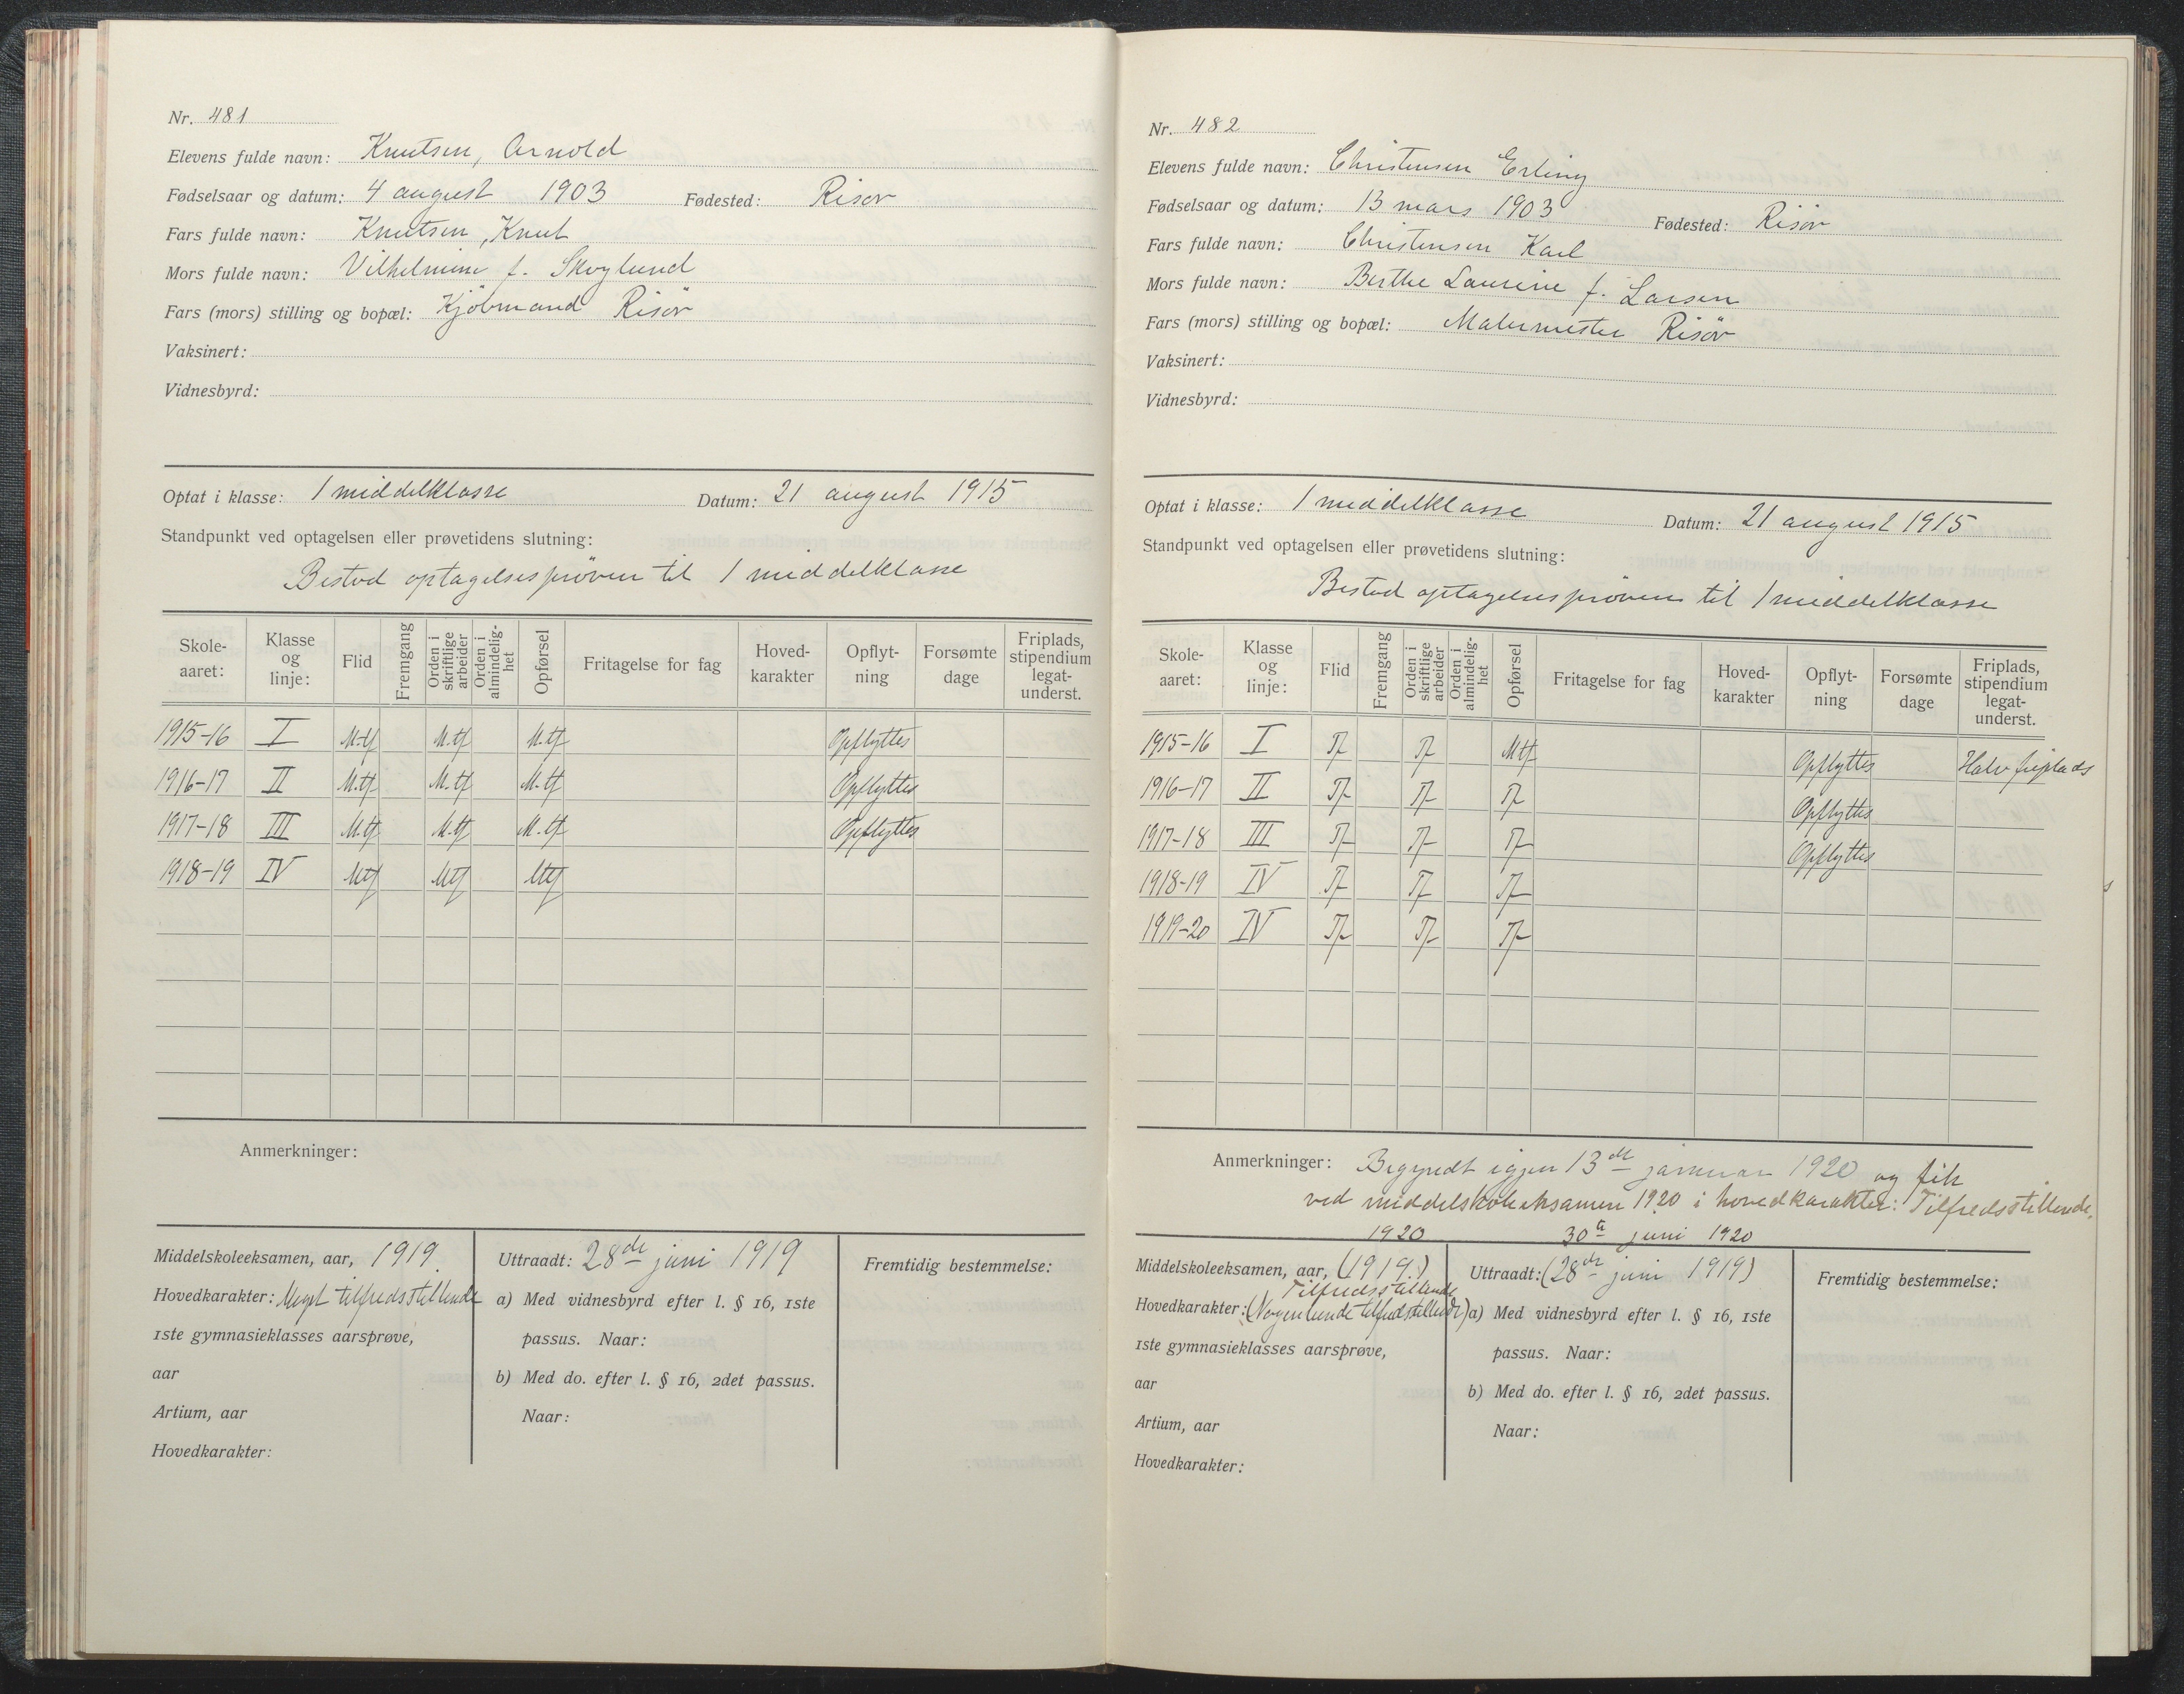 Nr. 481
Elevens fulde navn: Knutsen, Arnold
Fødselsaar og datum: 4 august 1903 Fødested: Risör
Fars fulde navn: Knutsen, Knut
Mors fulde navn: Vilhelmine f. Skoglund
Fars (mors) stilling og bopæl: Kjöbmand Risör
Vaksinert:
Vidnesbyrd:
Optat i klasse: 1 middelklasse Datum: 21 august 1915
Standpunkt ved optagelsen eller prøvetidens slutning:
Bestod optagelsespröven til 1 middelklasse
Skole-aaret: Klasse og linje: Flid Fremgang Orden i skriftlige arbeider Orden i almindelig-het Opførsel Fritagelse for fag Hoved-karakter Opflyt-ning Forsømte dage Friplads, stipendium legat-underst.
1915-16 I M.tf M.tf M.tf Opflyttes
1916-17 II M.tf M.tf M.tf Opflyttes
1917-18 III M.tf M.tf M.tf Opflyttes
1918-19 IV Mtf Mtf Mtf
Anmerkninger:
Middelskoleeksamen, aar, 1919.
Hovedkarakter: Meget tilfredsstillende
1ste gymnasieklasses aarsprøve,
aar
Artium, aar
Hovedkarakter:
Uttraadt: 28de juni 1919
a) Med vidnesbyrd efter l. § 16, 1ste
passus. Naar:
b) Med do. efter l. § 16, 2det passus.
Naar:
Fremtidig bestemmelse:
Nr. 482
Elevens fulde navn: Christensen Erling
Fødselsaar og datum: 13 mars 1903 Fødested: Risör
Fars fulde navn: Christensen Karl
Mors fulde navn: Berthe Laurine f. Larsen
Fars (mors) stilling og bopæl: Malermester Risör
Vaksinert:
Vidnesbyrd:
Optat i klasse: 1 middelklasse Datum: 21 august 1915
Standpunkt ved optagelsen eller prøvetidens slutning:
Bestod optagelsespröven til 1 middelklasse
Skole-aaret: Klasse og linje: Flid Fremgang Orden i skriftlige arbeider Orden i almindelig-het Opførsel Fritagelse for fag Hoved-karakter Opflyt-ning Forsømte dage Friplads, stipendium legat-underst.
1915-16 I Tf Tf Mtf Opflyttes Halv friplads
1916-17 II Tf Tf Tf Opflyttes
1917-18 III Tf Tf Tf Opflyttes
1918-19 IV Tf Tf Tf
1919-20 IV Tf Tf Tf
Anmerkninger: Begyndt igjen 13de januar 1920 og fik
ved middelskoleeksamen 1920 i hovedkarakter: Tilfredsstillende.
1920
Middelskoleeksamen, aar, (1919.)
Tilfredsstillende
Hovedkarakter: (Nogenlunde tilfredstillende)
1ste gymnasieklasses aarsprøve,
aar
Artium, aar
Hovedkarakter:
30te juni 1920
Uttraadt: (28de juni 1919)
a) Med vidnesbyrd efter l. § 16, 1ste
passus. Naar:
b) Med do. efter l. § 16, 2det passus.
Naar:
Fremtidig bestemmelse: